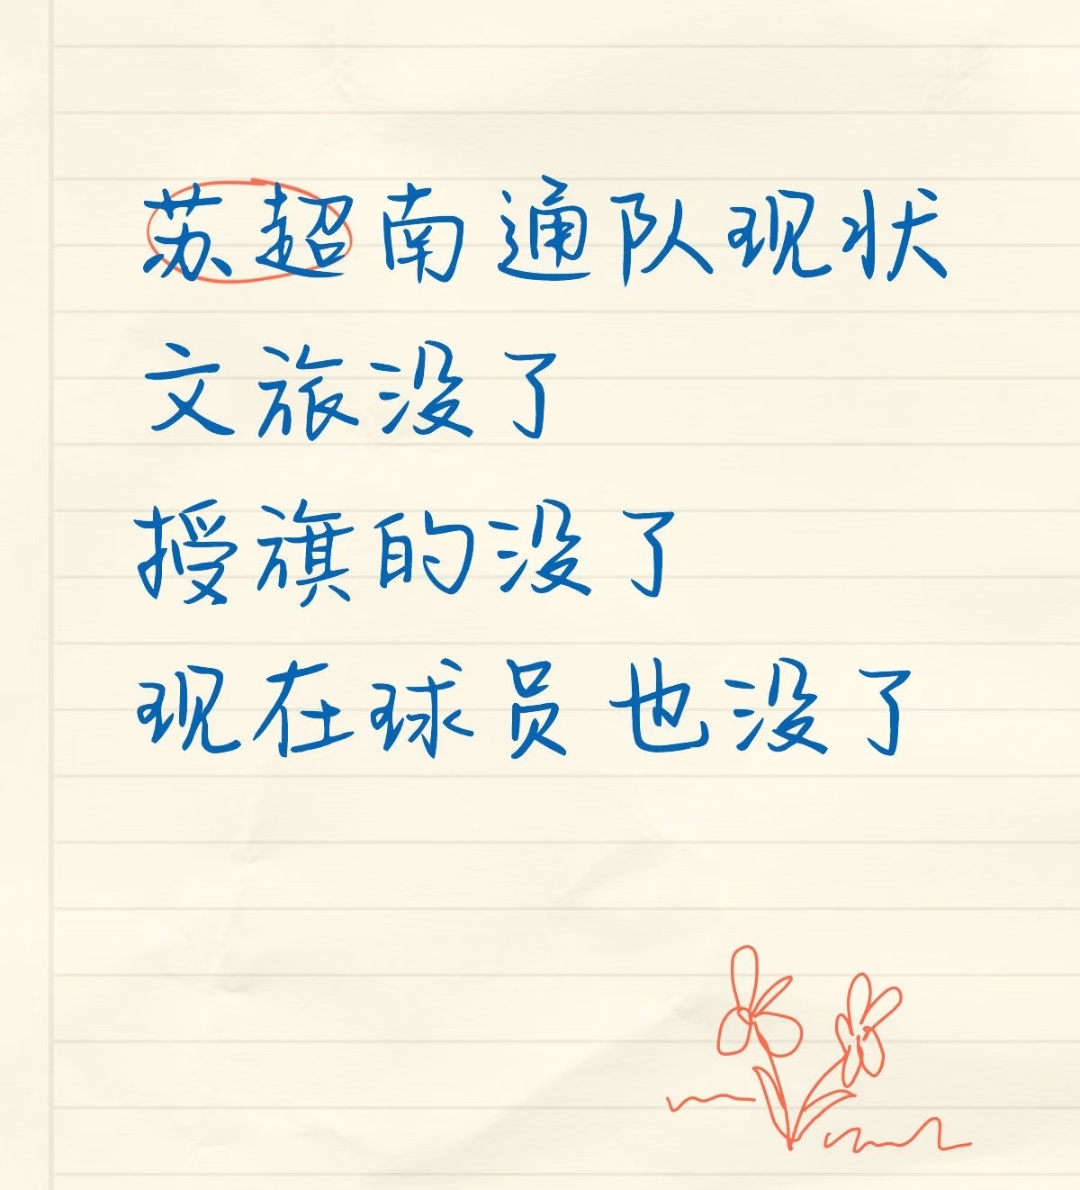 苏超南通队现状
文旅没了
授旗的没了
现在球员也没了